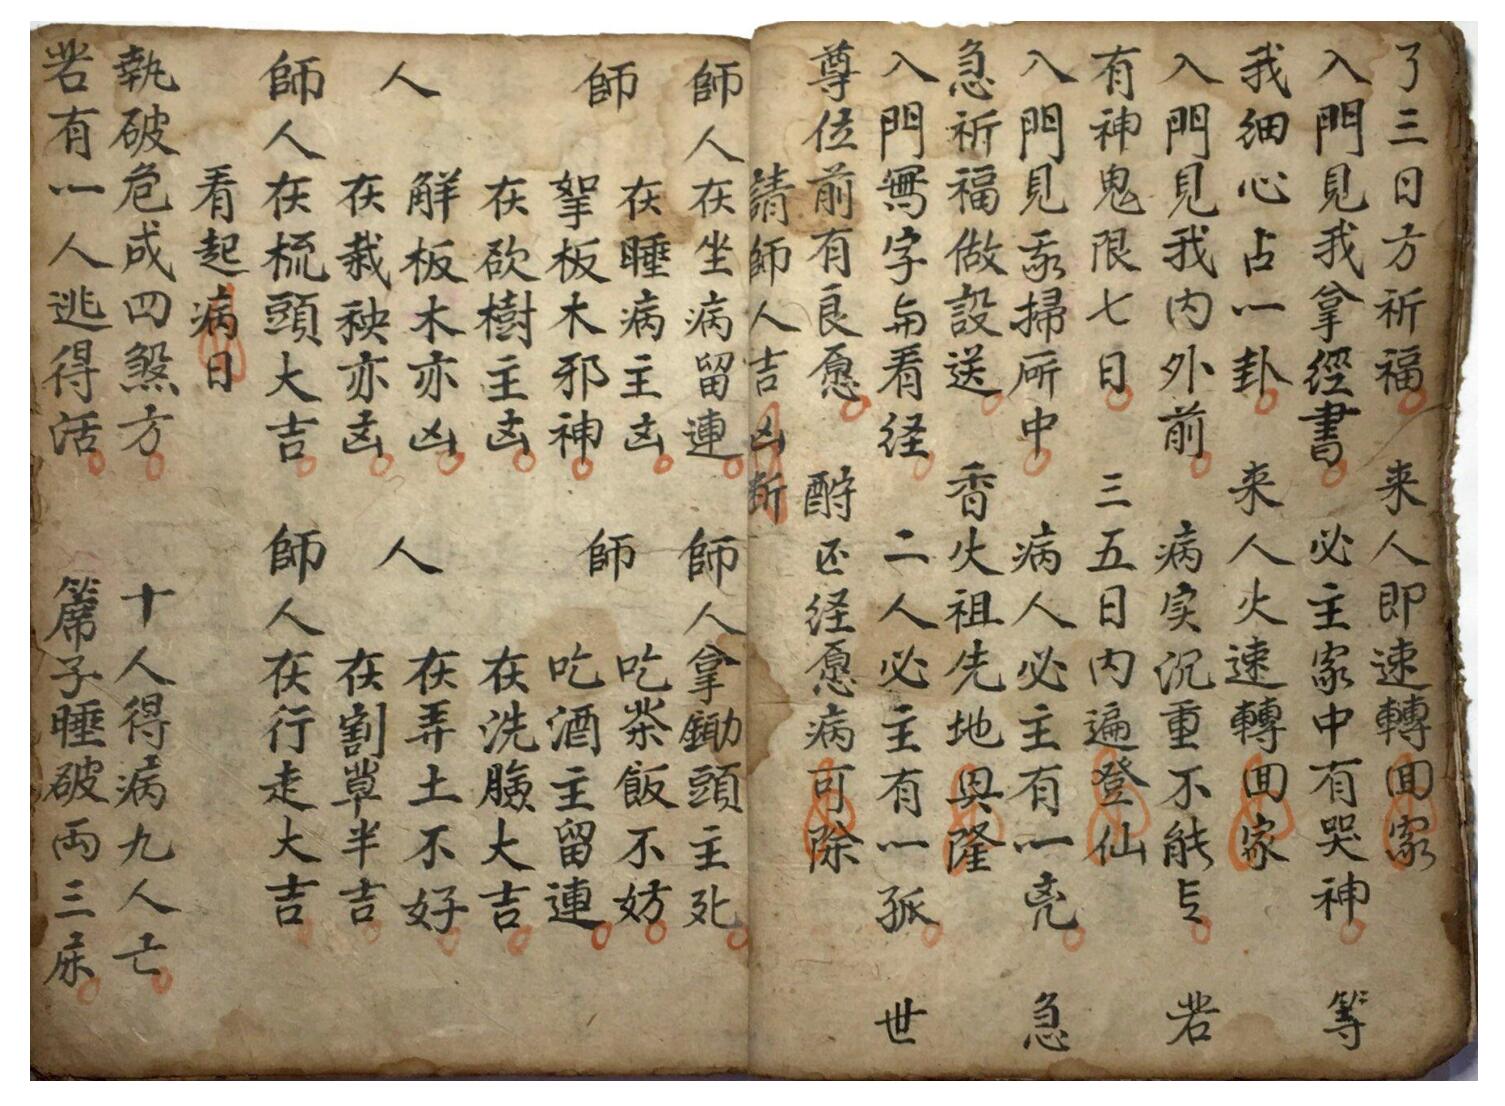 了三日方祈福 来人即速轉回家
入門見我拿經書 必主家中有哭神 等
我細心占一卦 来人火速轉回家
入門見我内外前 病実沉重不能占 若
有神鬼限七日 三五日内遍登仙
入門見我掃所中 病人必主有一兇 急
急祈福做設送 香火祖先地興隆
入門寫字与看経 二人必主有一孤 世
尊位前有良愿 酧还経愿病可除
請師人吉凶断
師人在坐病留連 師人拿鋤頭主死
在睡病主凶 吃茶飯不妨
師 挐板木邪神 師 吃酒主留連
在砍樹主凶 在洗臉大吉
人 解板木亦凶 人 在弄土不好
在栽秧亦凶 在割草半吉
師人在梳頭大吉 師人在行走大吉
看起病日
執破危成四煞方 十人得病九人亡
若有一人逃得活 簾子睡破両三床